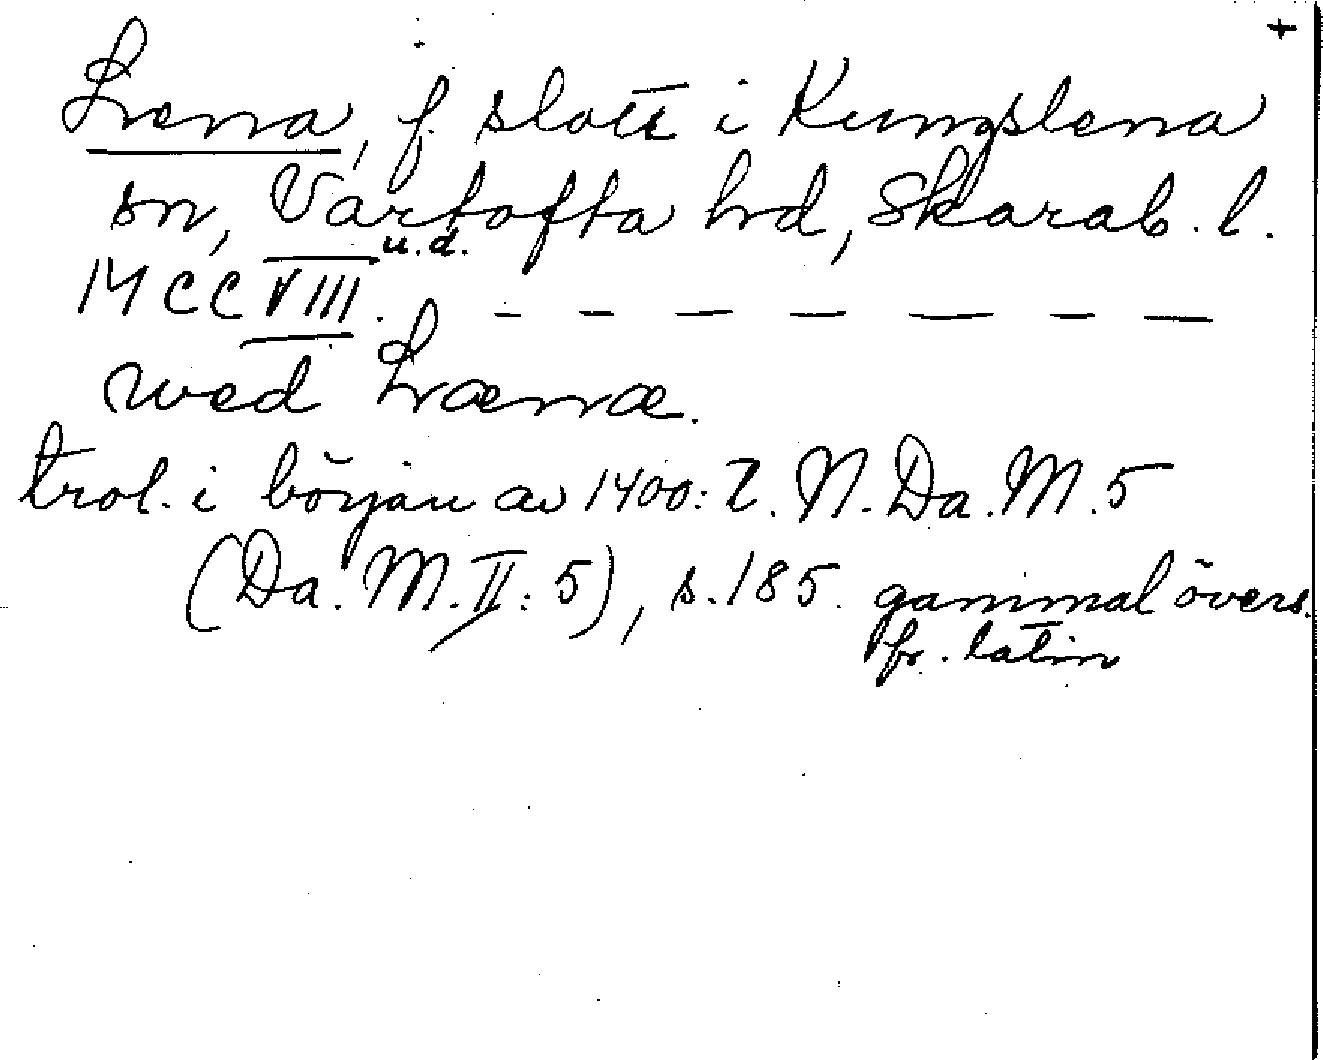 +
Lena, f. slott i Kungslena
sn, Vartofta hd, Skarab. l.
MCCVIII. u.d. — — — — — — —
wed Lænæ.
trol. i början av 1400: t. N. Da. M. 5
(Da. M. II: 5), s. 185. gammal övers.
fr. latin